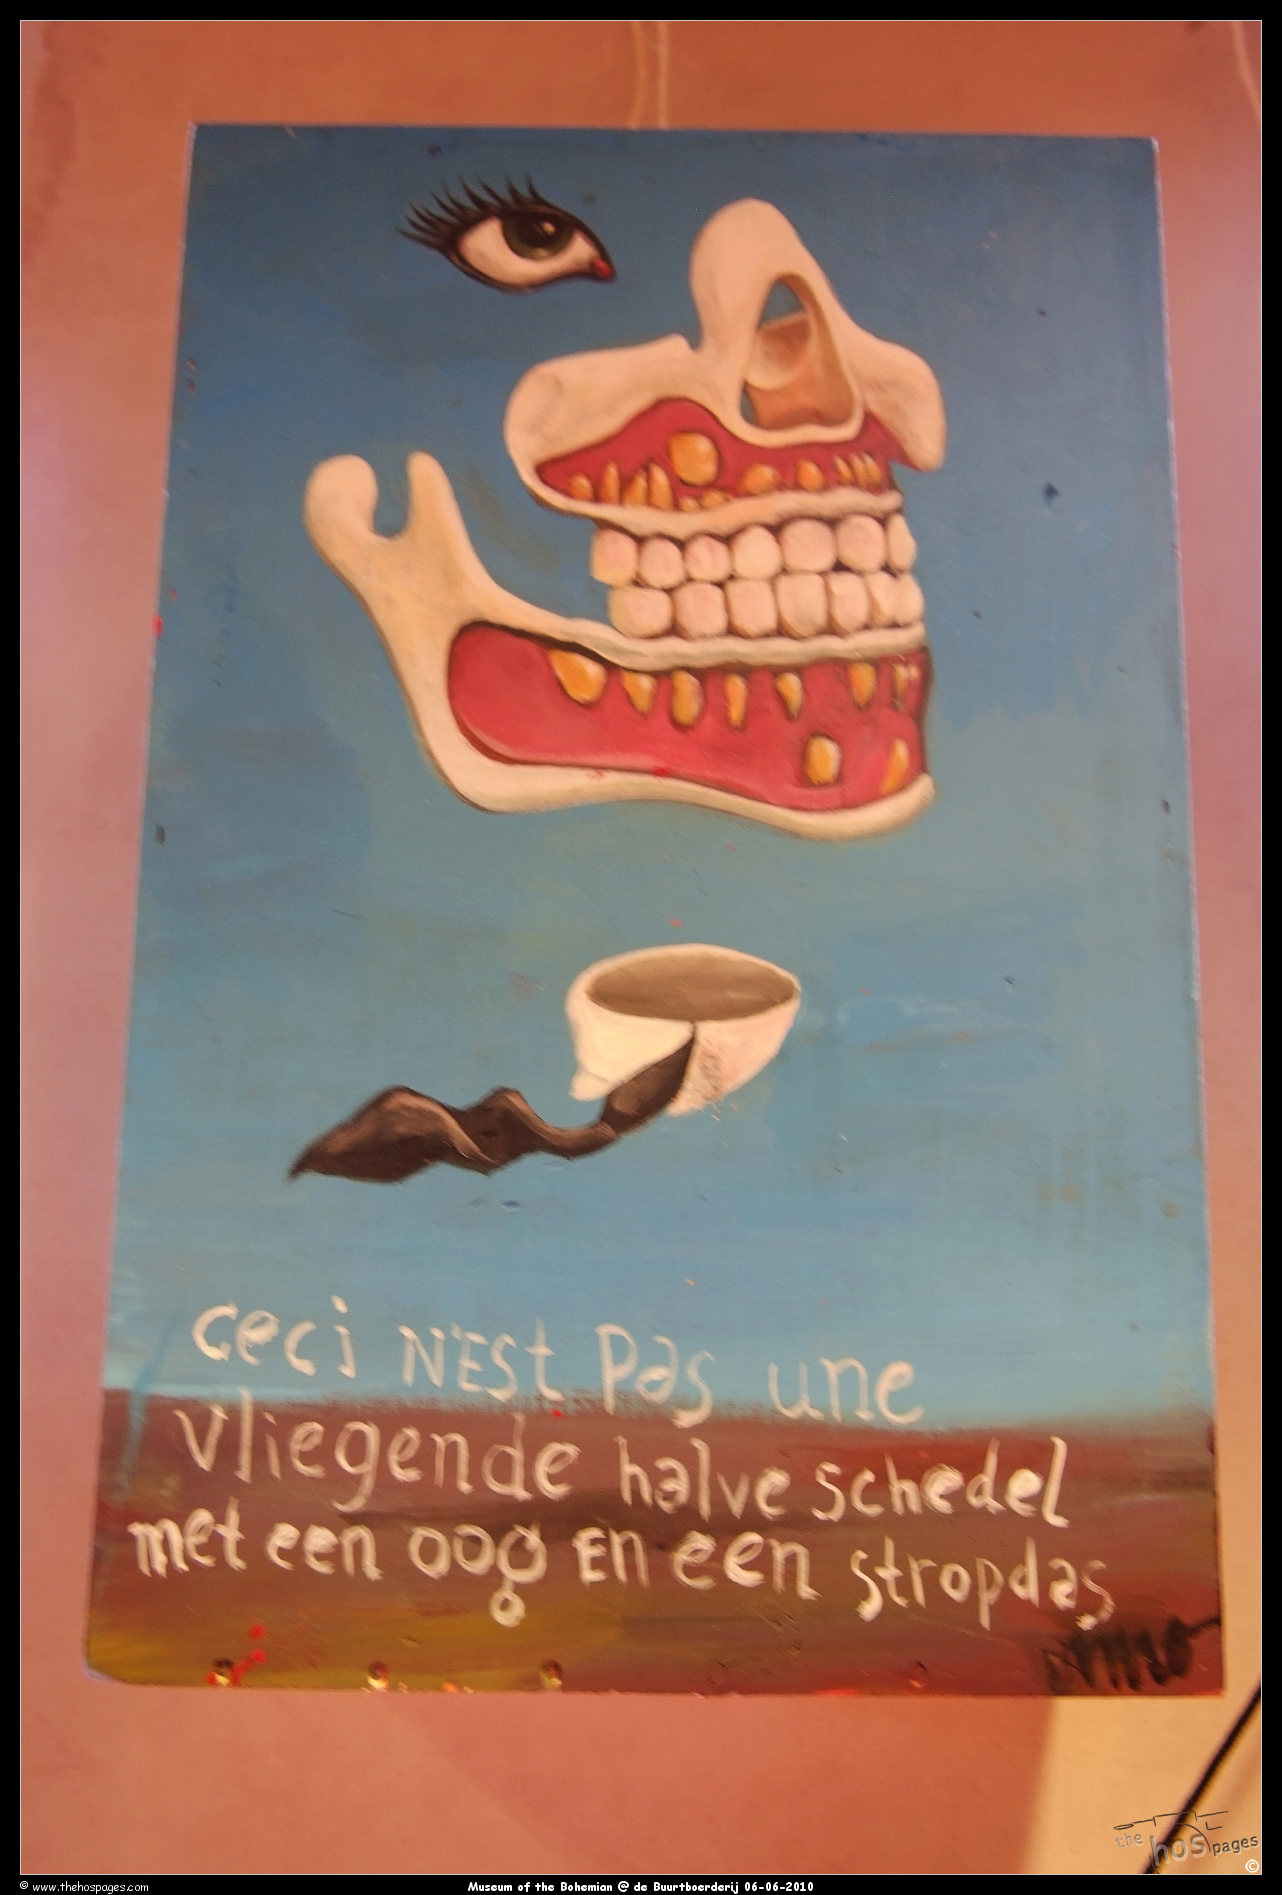 ceci N'ESt Pas une
vliegende halve schedel
met een oog En een stropdas
the hos pages
©
© www.thehospages.com
Museum of the Bohemian @ de Buurtboerderij 06-06-2010